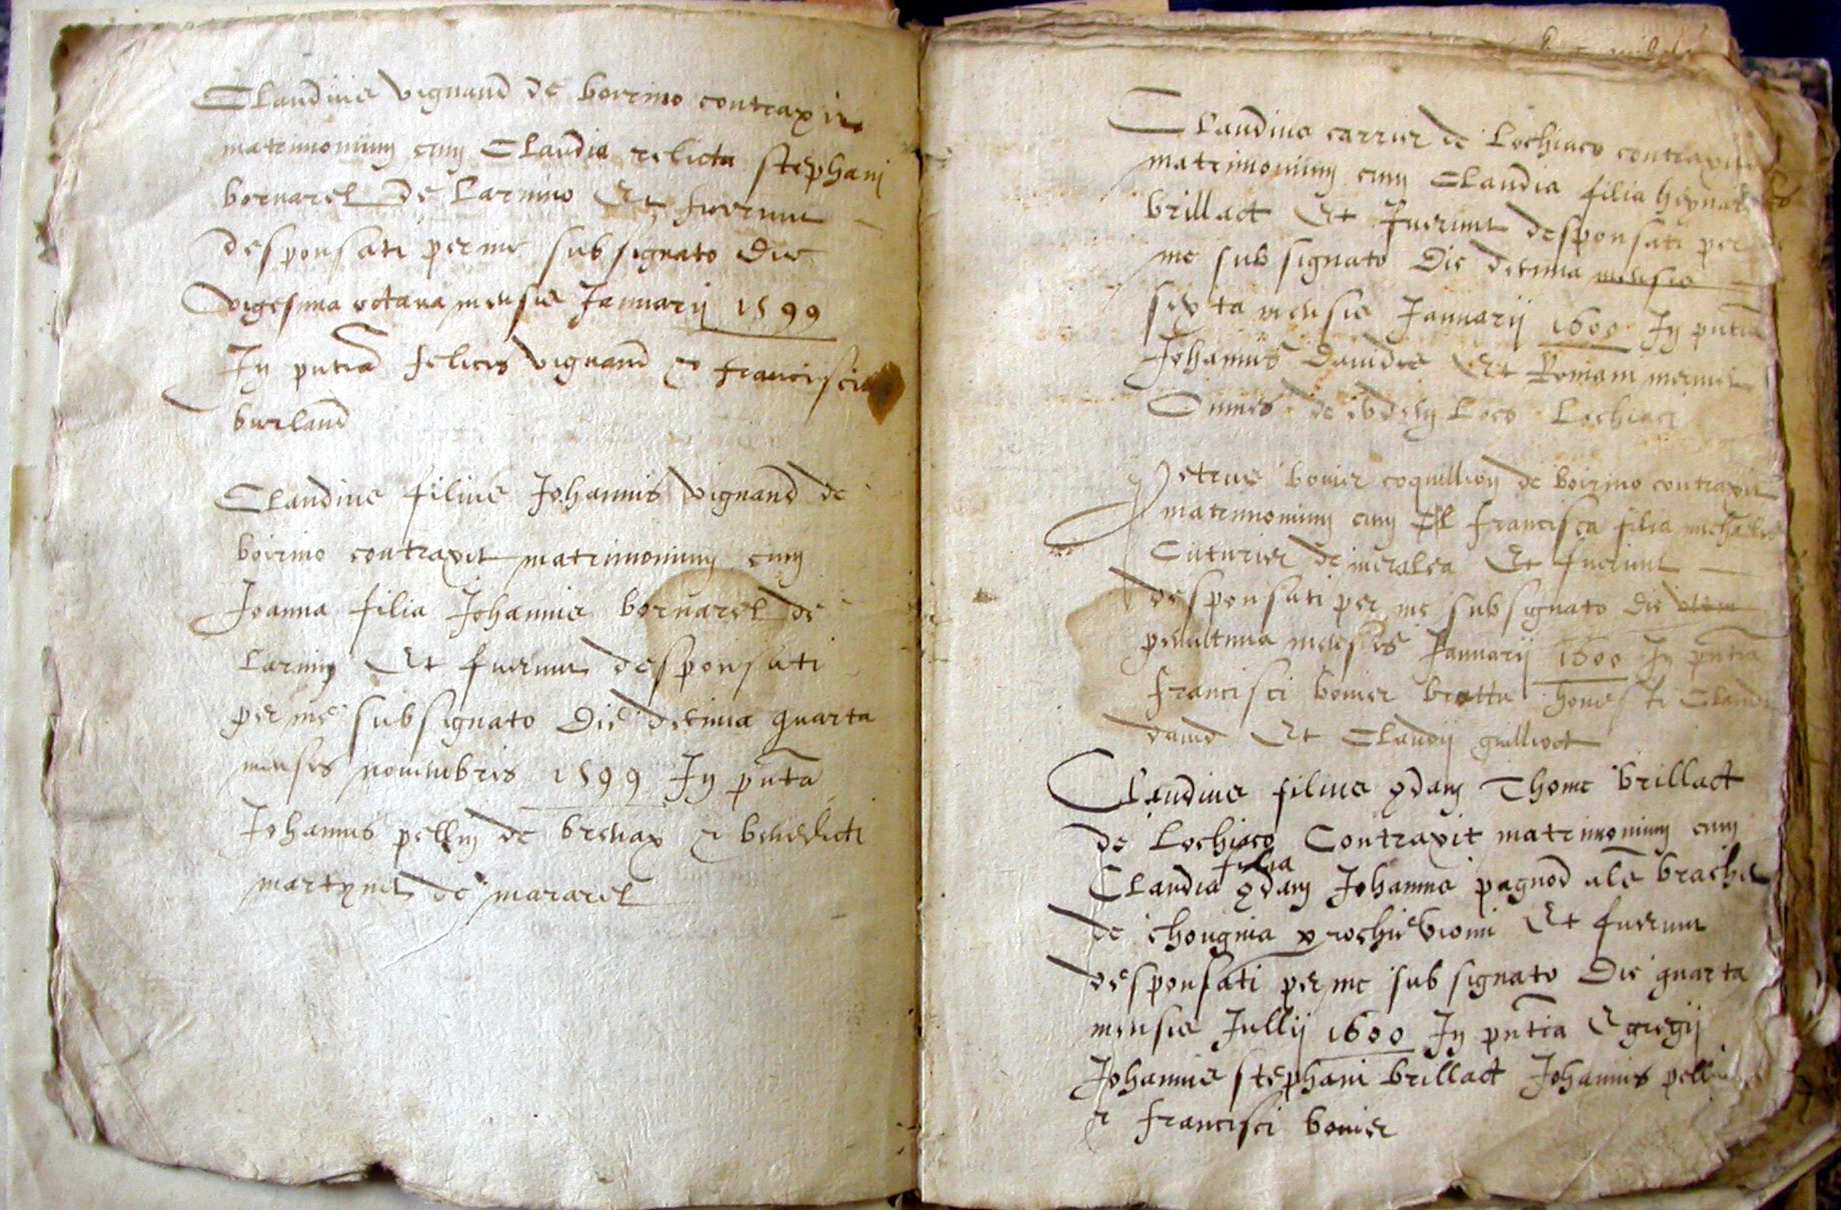 Claudius vignand de boirino contraxit
matrimonium cum Claudia relicta stephani
bornarel de Larnino Et fuerunt
desponsati per me subsignato Die
vigesima octava mensis Januarii 1599
In pntia felicis vignand & francisci
burland
Claudius filius Johannis vignand de
boirino contraxit matrimonium cum
Joanna filia Johannis bornarel de
Larnin Et fuerunt desponsati
per me subsignato Die decima quarta
mensis novembris 1599 In pntia
Johannis pellin de brenax & benedicti
martynet de mararel
Claudius carrier de Lochiaco contraxit
matrimonium cum Claudia filia
brillact Et fuerunt desponsati per
me subsignato Die decima mensis
sexta mensis Januarii 1600 In pntia
Johannis Et
Omnes de ibdem Loco Lochiaci
Petrus bovier coquillion de boirino contraxit
matrimonium cum francisca filia michaelis
Cuturier de Et fuerunt
desponsati per me subsignato Die
penultima mensis Januarii 1600 In pntia
francisci bovier honesti Claudii
david Et Claudii guillioct
Claudius filius qdam Thome brillact
de Lochiaco Contraxit matrimonium cum
filia
Claudia qdam Johannis pagnod als brachet
de chougnia parrochie Et fuerunt
desponsati per me subsignato Die quarta
mensis Jullii 1600 In pntia Egregii
Johannis stephani brillact Johannis pellin
& francisci bovier